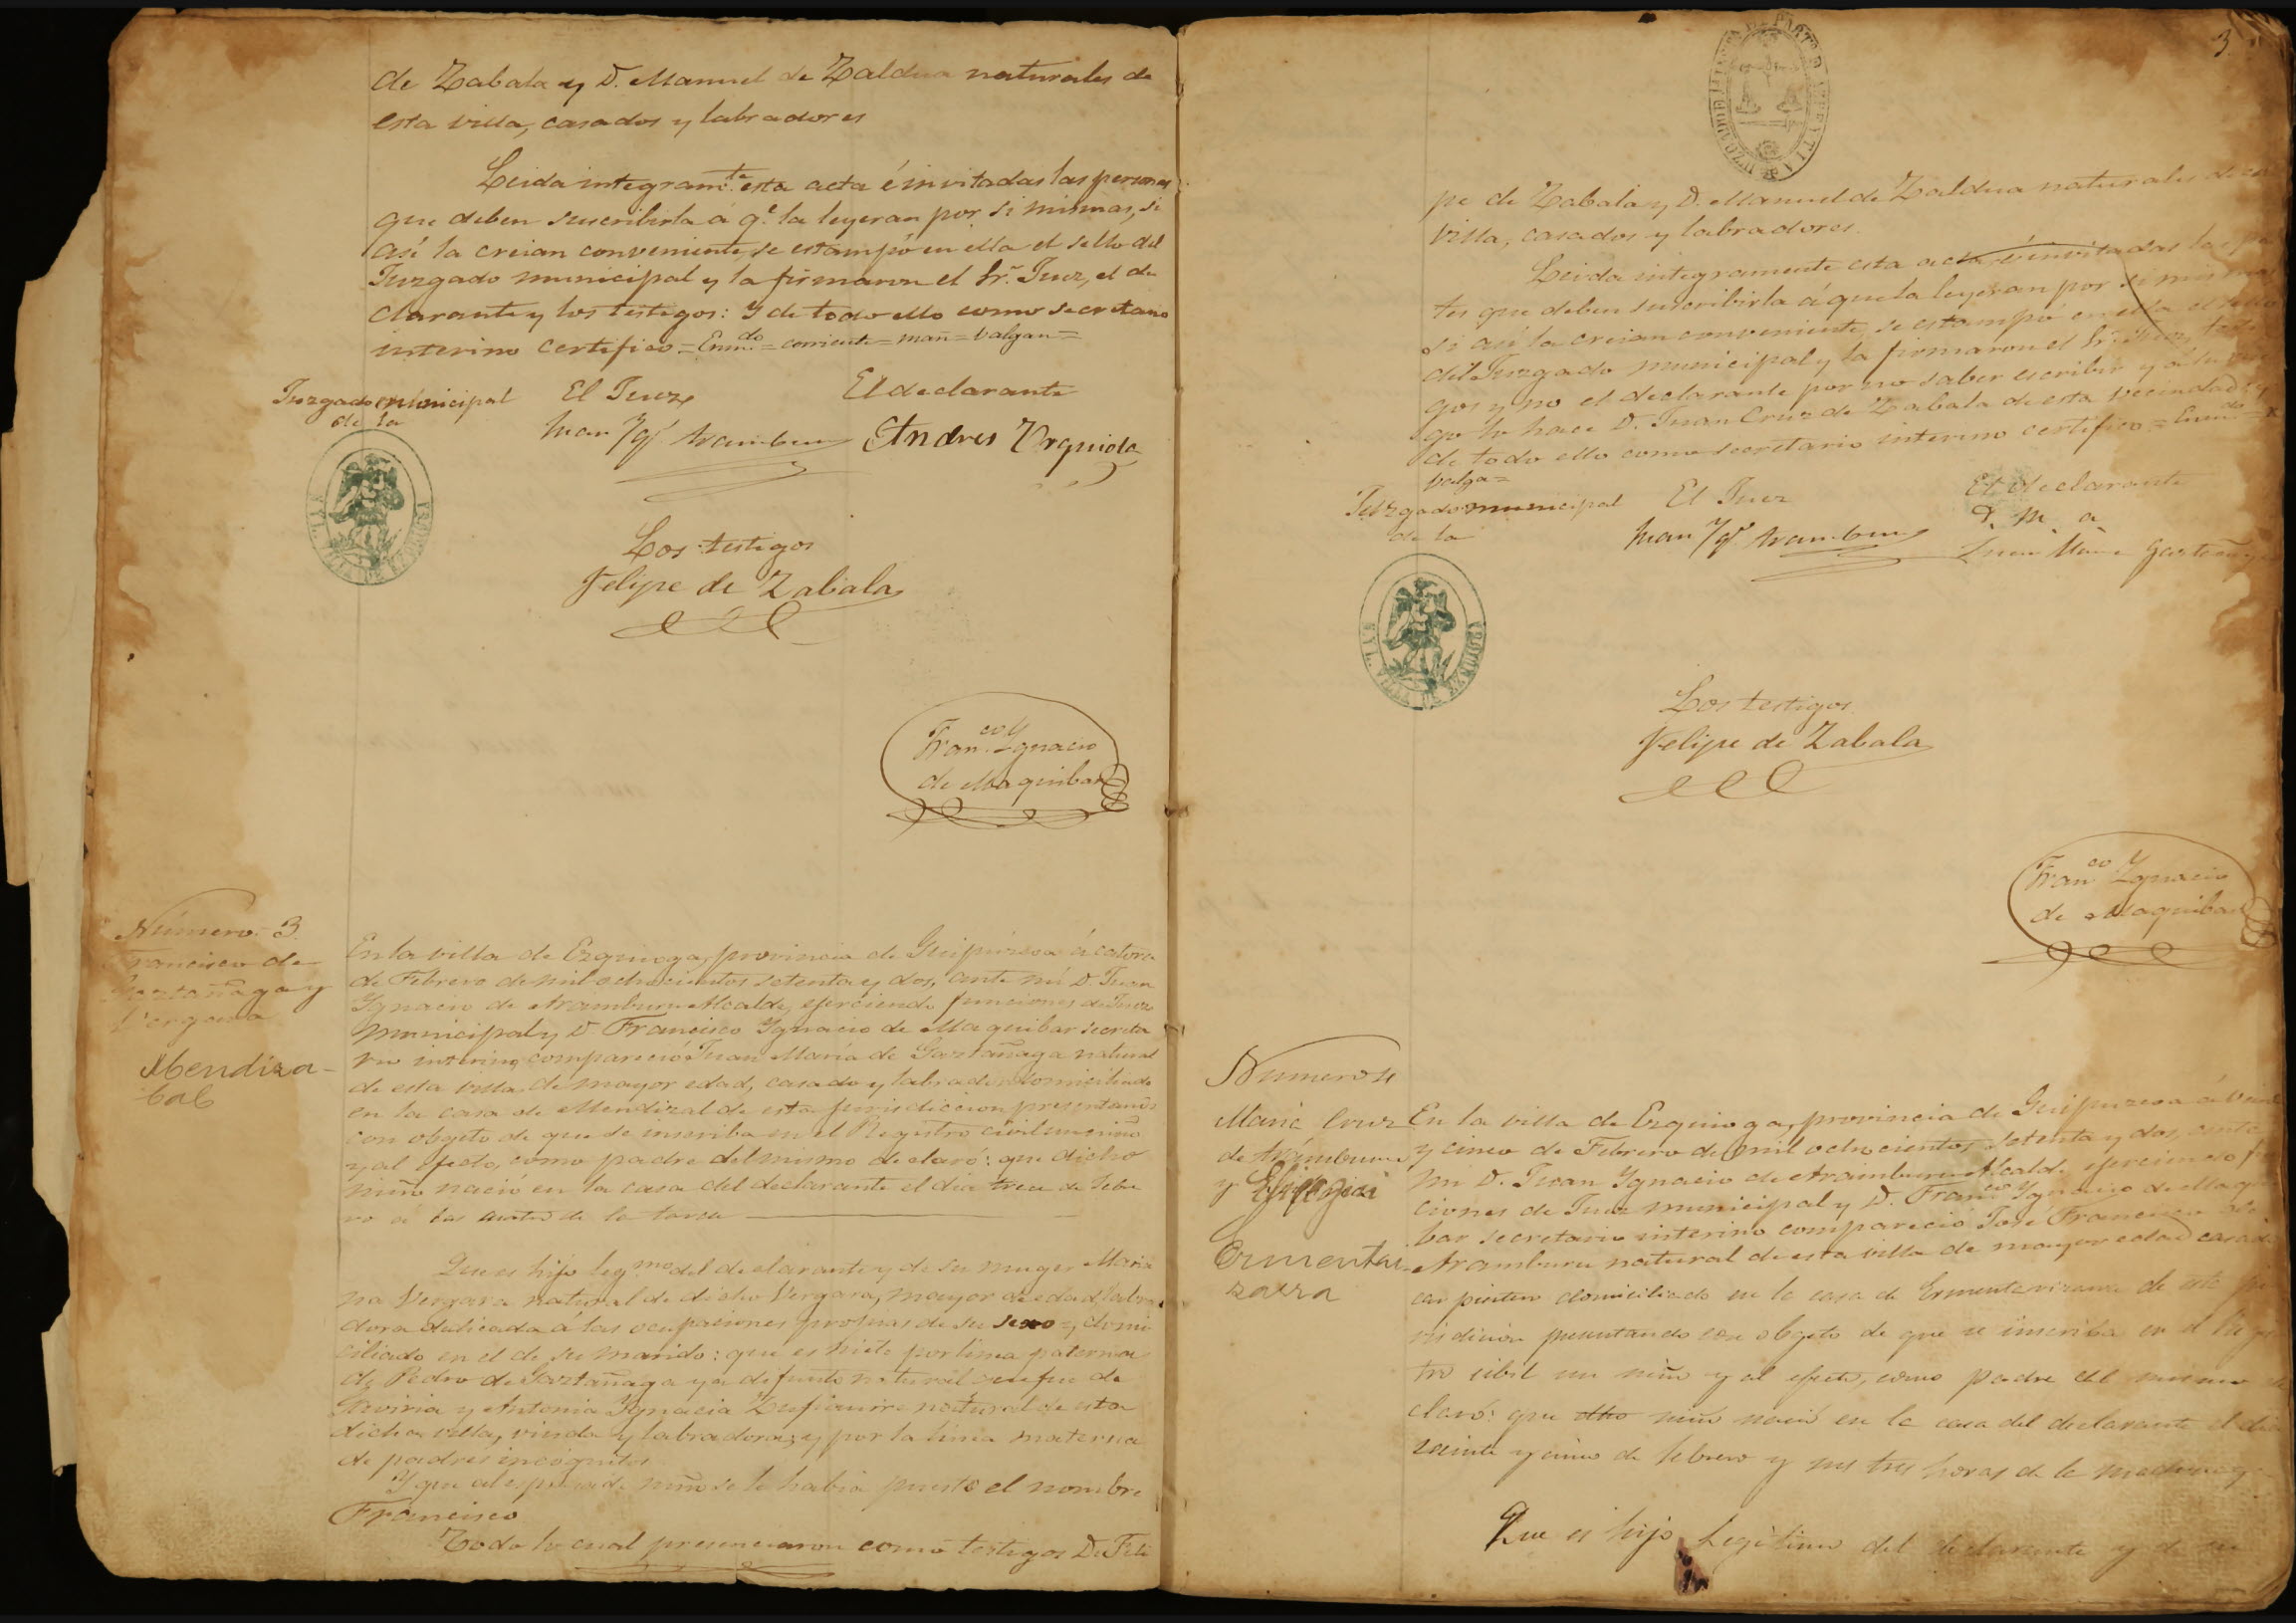 de Zabala y D. Manuel de Zaldua naturales de
esta villa, casados y labradores
Leida integram.te esta acta é invitadas las personas
que deben suscribirla á q.e la leyeran por si mismas, si
así la creian conveniente, se estampó en ella el sello del
Juzgado municipal y la firmaron el Sr. Juez, el de
clarante y los testigos: Y de todo ello como secretario
interino certifico = Enm.do = corriente = mañ = balgan =
Juzgado municipal
de la
El Juez
Juan Ygº Aramburu
El declarante
Andres Urquiola
VILLA DE EZQUIOGA
Los testigos
Felipe de Zabala
Fran.co Ygnacio
de Maquibar
Número 3
Francisco de
Gaztañaga y
Vergara
Mendiza-
bal
En la villa de Ezquioga, provincia de Guipúzcoa á catorce
de Febrero de mil ochocientos setenta y dos, ante mi D. Juan
Ygnacio de Aramburu Alcalde, ejerciendo funciones de Juez
municipal y D Francisco Ygnacio de Maquibar secreta
rio interino compareció Juan María de Gaztañaga natural
de esta villa de mayor edad, casado y labrador domiciliado
en la casa de Mendizal de esta jurisdiccion presentando
con objeto de que se inscriba en el Registro civil un niño
y al efecto, como padre del mismo declaró: que dicho
niño nació en la casa del declarante el dia trece de Febre
ro á las cuatro de la tarde
Que es hijo leg.mo del declarante y de su muger Maria
na Vergara natural de dicho Vergara, mayor de edad, labra
dora dedicada á las ocupaciones propias de su sexo y domi
ciliado en el de su marido: que es nieto por linea paterna
de Pedro de Gaztañaga ya difunto natural que fue de
Gaviria y Antonia Ygnacia Zufiaurre natural de esta
dicha villa, viuda y labradora; y por la linea materna
de padres incógnitos
Y que al espresado niño se le habia puesto el nombre
Francisco
Todo lo cual presenciaron como testigos D. Feli
3
JUZGADO DE PARTO AZPEITIA
pe de Zabala y D. Manuel de Zaldua naturales de
villa, casados y labradores.
Leida integramente esta acta é invitadas las
tes que deben suscribirla á que la leyeran por si mismas
si así la creian conveniente, se estampó en ella el sello
del Juzgado municipal y la firmaron el Sr. Juez, testi
gos y no el declarante por no saber escribir y á su rue
go lo hace D. Juan Cruz de Zabala de esta vecindad: y
de todo ello como secretario interino certifico = Enmdo =
balga =
Juzgado municipal
de la
El Juez
Juan Ygº Aramburu
El declarante
Juan Maria Gaztañaga
VILLA DE EZQUIOGA
Los testigos
Felipe de Zabala
Fran.co Ygnacio
de Maquibar
Numero 4
Maria Cruz
de Aramburu
y
Ermentai
zarra
En la villa de Ezquioga, provincia de Guipuzcoa á veinte
y cinco de Febrero de mil ochocientos setenta y dos, ante
mi D. Juan Ygnacio de Aramburu Alcalde ejerciendo fun
ciones de Juez municipal y D. Fran.co Ygnacio de Maqui
bar secretario interino compareció José Francisco de
Aramburu natural de esta villa de mayor edad casado
carpintero domiciliado en la casa de de esta ju
risdicion presentando con objeto de que se inscriba en el Regis
tro cibil un niño y al efecto, como padre del mismo de
claró: que dho niño nació en la casa del declarante el dia
veinte y cinco de febrero y sus tres horas de la
Que es hijo Legitimo del declarante y de su